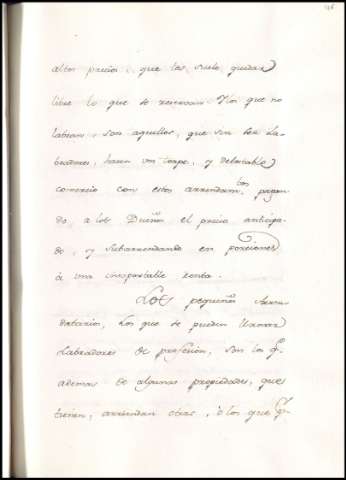 altos precios, que les suele quedar
libre lo que se reservan. Y los que no
labran, son aquellos, que sin ser La-
bradores, hacen un torpe, y detestable
comercio con estos arrendam.tos pagan-
do a los Dueños el precio anticipa-
do, y Subarrendando en porciones
à una insoportable renta.
Los pequeños Arren-
datarios, los que se pueden llamar
Labradores de profesion, son los q.e
ademas de algunas propiedades, que
tienen, arriendan otras, ò los que q.e